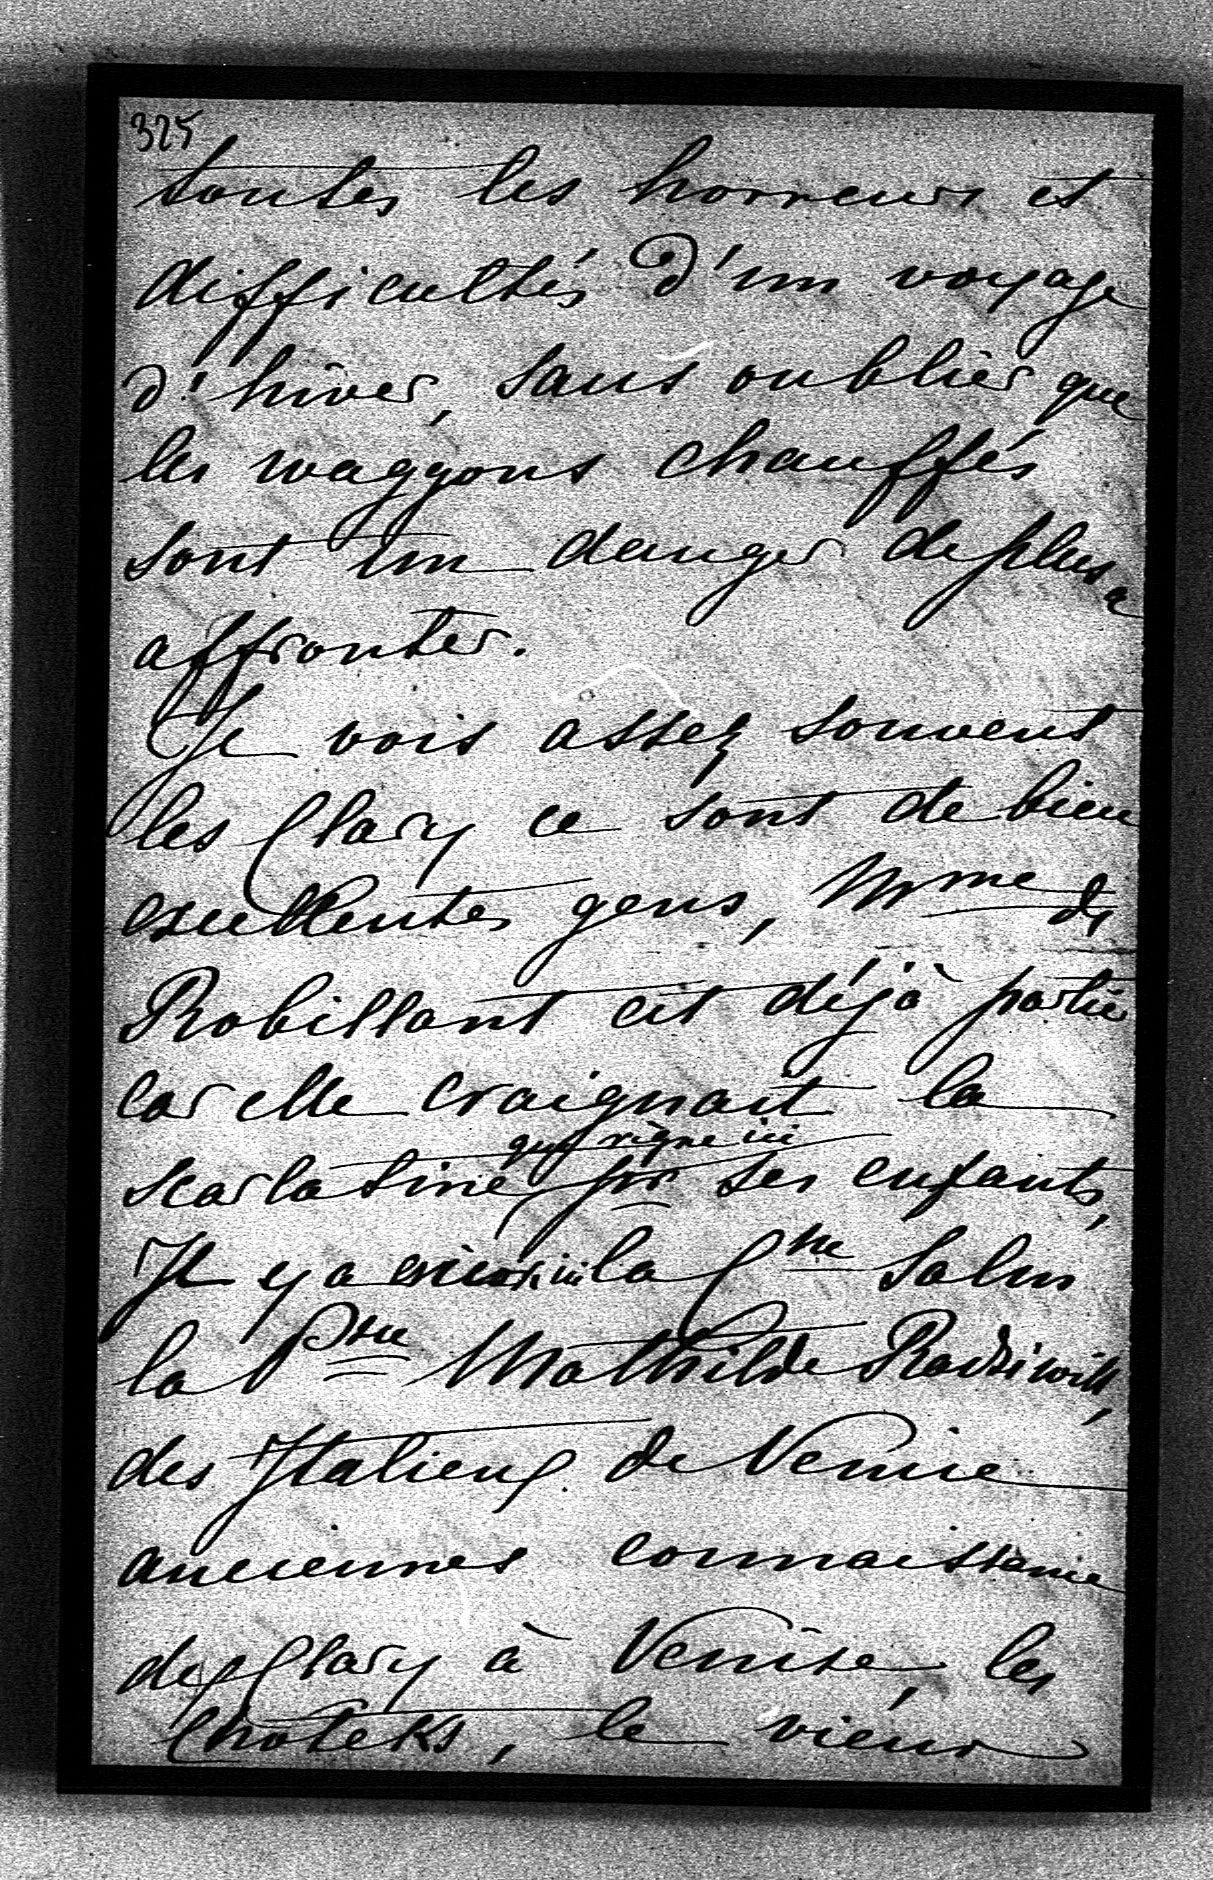 325
toutes les horreurs et
difficultés d'un voyage
d'hiver, sans oublier que
les waggons chauffés
sont un danger de plus a
affronter.
Je vois assez souvent
les Clary ce sont de bien
excellentes gens, Mme de
Robillant est déjà partie
car elle craignait la
qui règne ici
scarlatine pr ses enfants,
Il y a encore ici la Csse Salm
la Psse Mathilde Radziwill,
des Italiens de Venise
anciennes connaissance
des Clary à Venise, les
Choteks, le vieux